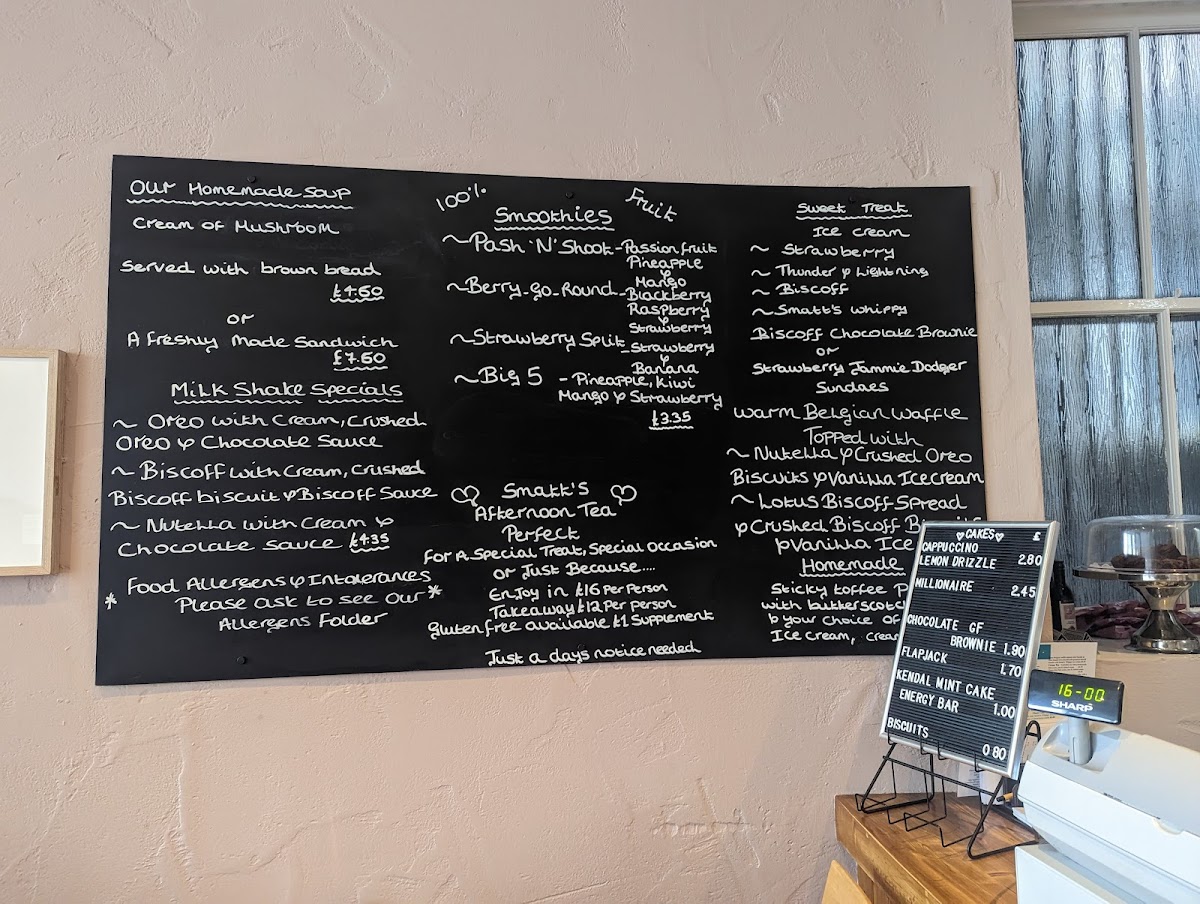 Our Homemade Soup
Cream of Mushroom
Served with brown bread
£4.60
or
A freshly made Sandwich
£7.60
Milk Shake Specials
~ Oreo with Cream, Crushed
Oreo & Chocolate Sauce
~ Biscoff with Cream, Crushed
Biscoff biscuit & Biscoff Sauce
~ Nutella with Cream &
Chocolate Sauce £4.35
Food Allergens & Intolerances
* Please ask to see Our *
Allergens Folder
100% Fruit
Smoothies
~ Pash 'N' Shoot - Passion fruit
Pineapple
&
Mango
~ Berry-Go-Round - Blackberry
Raspberry
&
Strawberry
~ Strawberry Split - Strawberry
&
Banana
~ Big 5 - Pineapple, Kiwi
Mango & Strawberry
£3.35
Smatt's
Afternoon Tea
Perfect
for A Special Treat, Special Occasion
or Just Because....
Enjoy in £16 Per Person
Takeaway £12 Per person
Gluten free available £1 Supplement
Just a days notice needed
Sweet Treat
Ice cream
~ Strawberry
~ Thunder & Lightning
~ Biscoff
~ Smatt's Whippy
Biscoff Chocolate Brownie
or
Strawberry Jammie Dodger
Sundaes
Warm Belgian Waffle
Topped with
~ Nutella & Crushed Oreo
Biscuits & Vanilla Icecream
~ Lotus Biscoff Spread
& Crushed Biscoff
& Vanilla Ice
Homemade
Sticky toffee
with butterscotch
& your choice of
Ice cream,
CAKES £
CAPPUCCINO
LEMON DRIZZLE 2.80
MILLIONAIRE 2.45
CHOCOLATE GF
BROWNIE 1.90
FLAPJACK 1.70
KENDAL MINT CAKE
ENERGY BAR 1.00
BISCUITS 0.80
16-00
SHARP